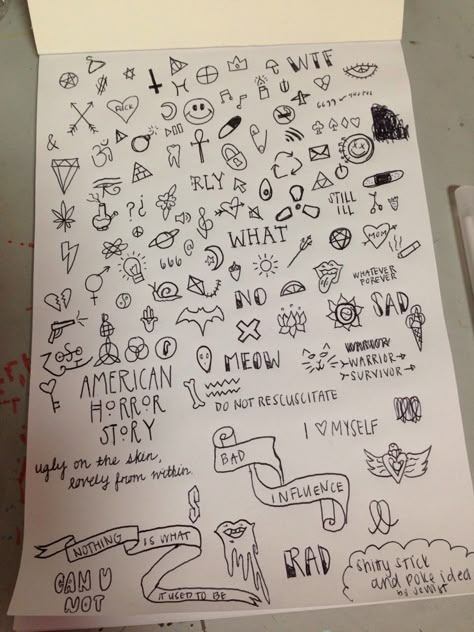 WTF
FUCK
&
RLY
STILL
ILL
? ¿
WHAT
MOM
666
@
WHATEVER
FOREVER
NO
SAD
MEOW
WARRIOR
WARRIOR
SURVIVOR
AMERICAN
HORROR
STORY
DO NOT RESCUSCITATE
I ♡ MYSELF
ugly on the skin,
lovely from within.
BAD
INFLUENCE
NOTHING IS WHAT
IT USED TO BE
CAN U
NOT
RAD
shitty stick
and poke idea